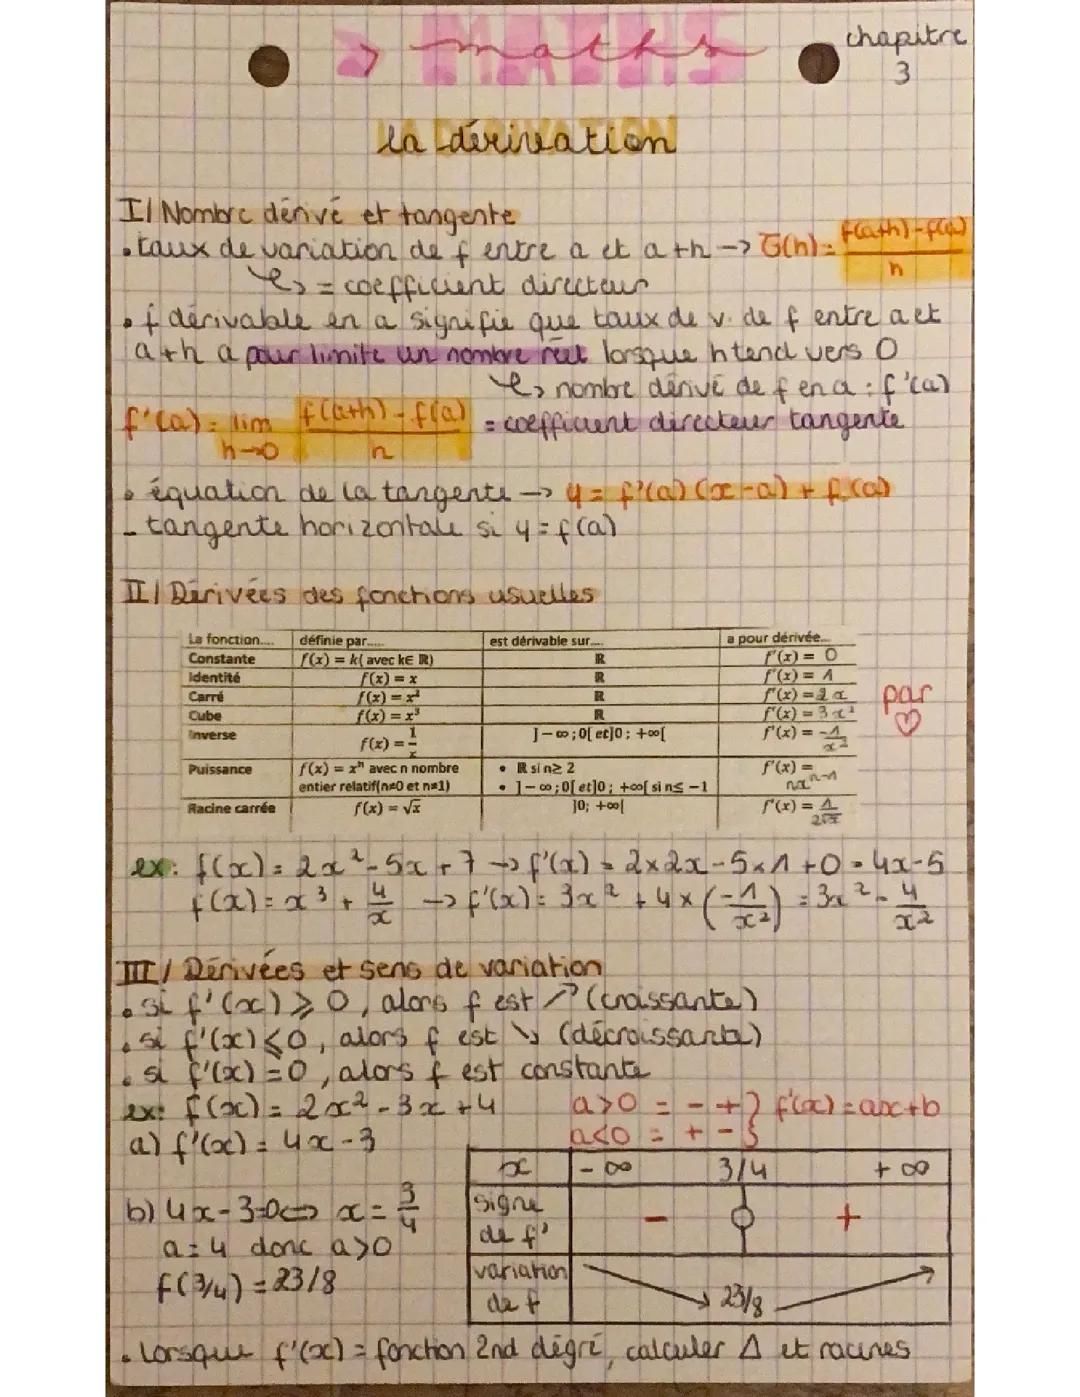 → maths
MATHS
chapitre
3
la dérivation
I/ Nombre dérivé et tangente
• taux de variation de f entre a et a+h → τ(h) = f(a+h)-f(a) / h
↳ = coefficient directeur
• f dérivable en a signifie que taux de v. de f entre a et
a+h a pour limite un nombre réel lorsque h tend vers 0
↳ nombre dérivé de f en a : f'(a)
f'(a) = lim h→0 f(a+h) - f(a) / h = coefficient directeur tangente
• équation de la tangente → y = f'(a)(x-a) + f(a)
- tangente horizontale si y = f(a)
II/ Dérivées des fonctions usuelles
La fonction.... définie par..... est dérivable sur.... a pour dérivée...
Constante f(x) = k( avec k∈ ℝ) ℝ f'(x) = 0
Identité f(x) = x ℝ f'(x) = 1
Carré f(x) = x² ℝ f'(x) = 2x
Cube f(x) = x³ ℝ f'(x) = 3x²
Inverse f(x) = 1/x ]-∞;0[ et]0; +∞[ f'(x) = -1/x²
Puissance f(x) = xⁿ avec n nombre • ℝ si n≥ 2 f'(x) =
entier relatif(n≠0 et n≠1) • ]-∞;0[ et]0; +∞[ si n≤ -1 nxⁿ⁻¹
Racine carrée f(x) = √x ]0; +∞[ f'(x) = 1/2√x
par
♡
ex: f(x) = 2x² - 5x + 7 → f'(x) = 2×2x - 5×1 + 0 = 4x-5
f(x) = x³ + 4/x → f'(x) = 3x² + 4 × (-1/x²) = 3x² - 4/x²
III/ Dérivées et sens de variation
• si f'(x) ⩾ 0, alors f est ↗ (croissante)
• si f'(x) ⩽ 0, alors f est ↘ (décroissante)
• si f'(x) = 0, alors f est constante
ex: f(x) = 2x² - 3x + 4 a>0 = - + } f'(x) = ax+b
a) f'(x) = 4x - 3 a<0 = + - }
x -∞ 3/4 + ∞
b) 4x-3=0 ⟺ x = 3/4
signe
de f' - 0 +
a = 4 donc a>0
f(3/4) = 23/8
variation
de f ↘ 23/8 ↗
• Lorsque f'(x) = fonction 2nd degré, calculer Δ et racines